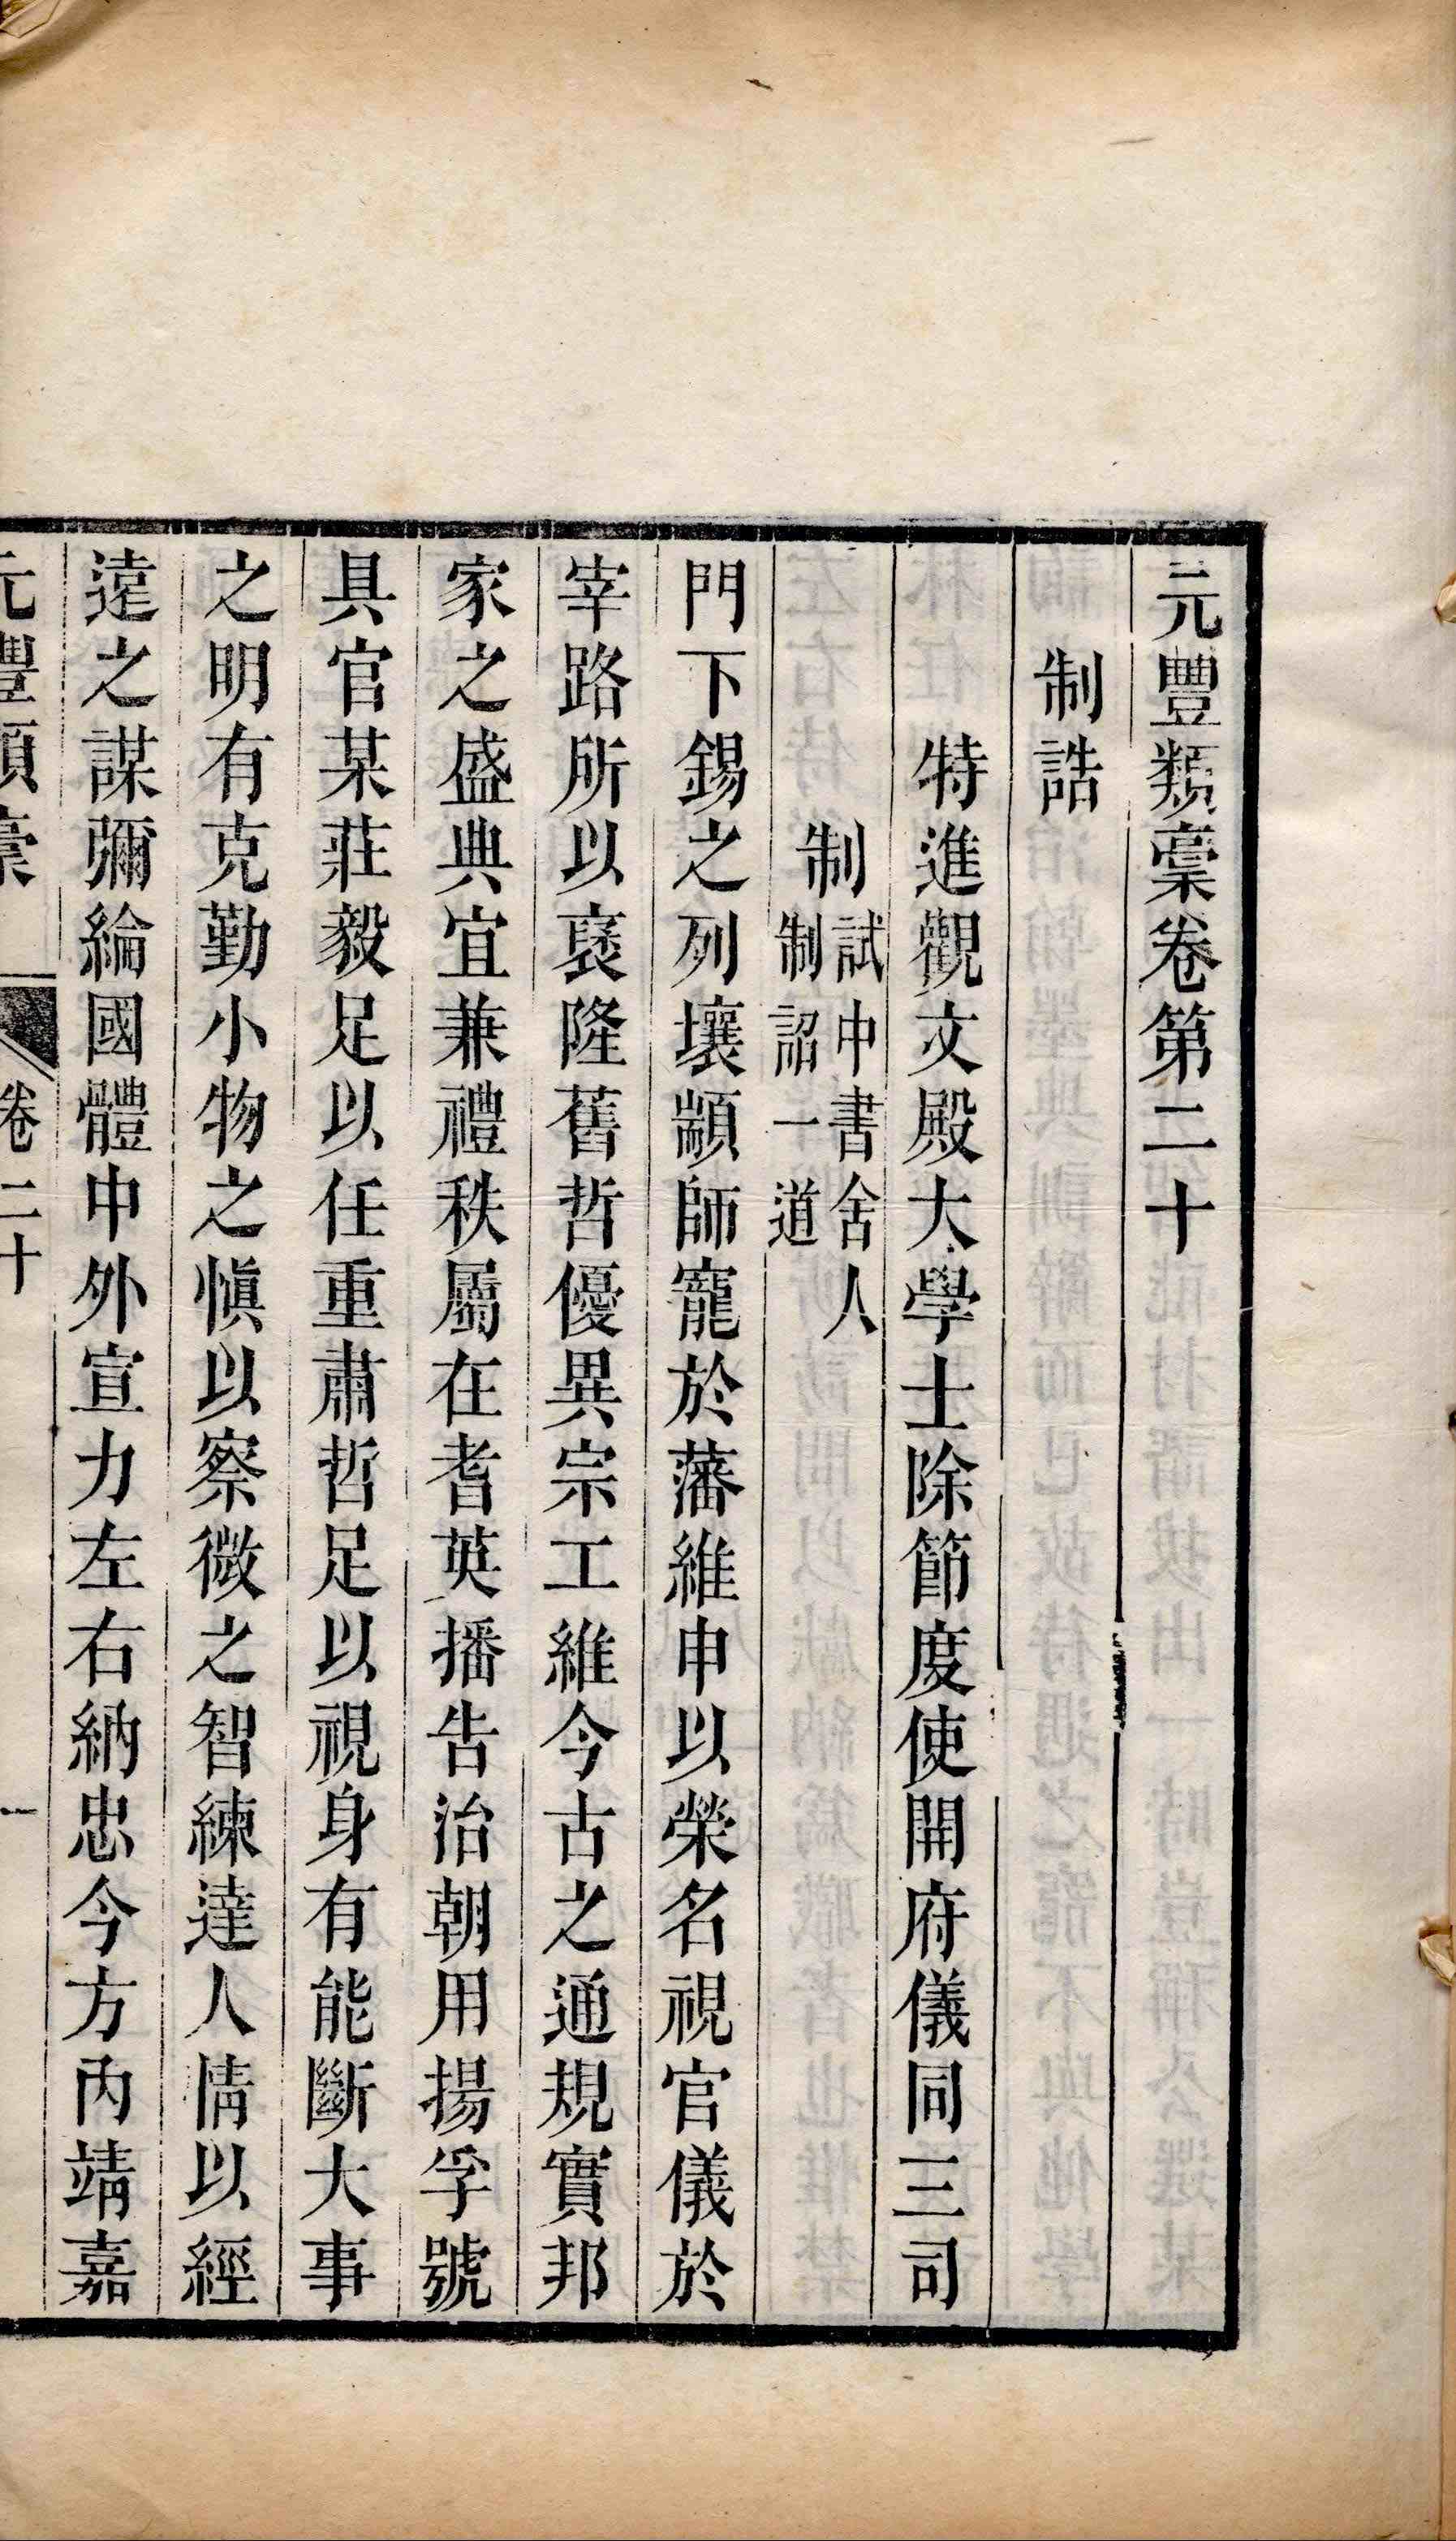 元豐類稾卷第二十
制誥
特進觀文殿大學士除節度使開府儀同三司
制試中書舍人制詔一道
門下錫之列壤顓師寵於藩維申以榮名視官儀於
宰路所以襃隆舊哲優異宗工維今古之通規實邦
家之盛典宜兼禮秩屬在耆英播告治朝用揚孚號
具官某莊毅足以任重肅哲足以視身有能斷大事
之明有克勤小物之愼以察微之智練達人情以經
遠之謀彌綸國體中外宣力左右納忠今方內靖嘉
元豐類稾
卷二十
一